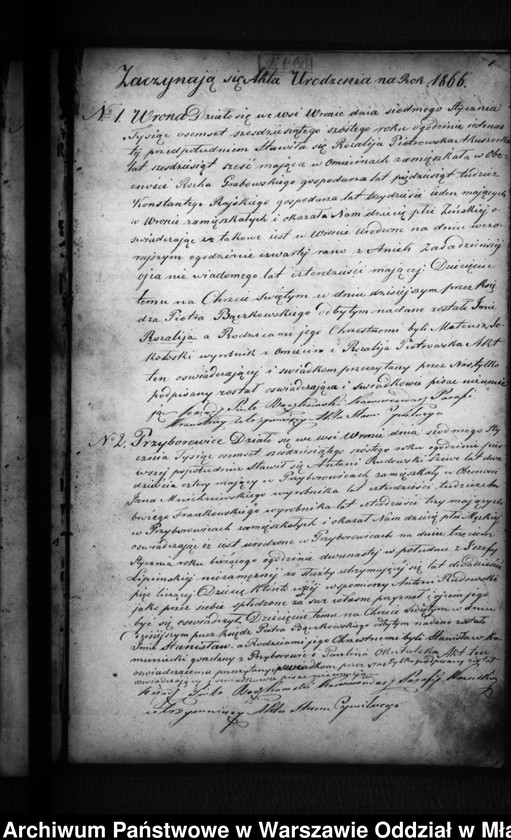 Zaczynają się Akta Urodzenia na Rok 1866.
№ 1. Wrona Działo się we wsi Wronie dnia siódmego Stycznia
Tysiąc ośmset sześdziesiątego szóstego roku o godzinie
przed południem Stawiła się Rozalija Piotrowska Akuszerka
lat sześdziesiąt sześć mająca w Omięcinach zamięszkała w Obe-
cności Rocha Grabowskiego gospodarza lat piędziesiąt tudzież
Konstantego Rajskiego gospodarza lat trzydzieści ieden mających
w Wronie zamięszkałych i okazała Nam dziecię płci Żeńskiej o-
świadczając iż takowe iest w Wronie urodzone na dniu wczo-
rajszym o godzinie czwartej rano z Anieli
ojca nie wiadomego lat czterdzieści mającej; Dziecięciu
temu na Chrzcie Świętym w dniu dzisiejszym przez Księ-
dza Piotra Bączkowskiego odbytym nadane zostało Imie
Rozalija a Rodzicami jego Chrzestnemi byli Mateusz So-
kołoski wyrobnik z Omięcin i Rozalija Piotrowska Akt
ten oświadczającej i świadkom przeczytany przez Nas tylko
podpisany został oświadczająca i świadkowie pisać nieumie-
ją
Akta Stanu Cywilnego
№ 2. Przyborowice Działo się we wsi Wronie dnia siódmego Sty-
cznia Tysiąc ośmset sześdziesiątego szóstego roku o godzinie pier-
wszej po południu Stawił się Antoni Rudowski lat dwa-
dzieścia cztery mający w Przyborowicach zamięszkały w Obecności
Jana wyrobnika lat czterdzieści tudzież
Frankowskiego wyrobnika lat czterdzieści trzy mających
w Przyborowicach zamięszkałych i okazał Nam dziecię płci Męzkiej
oświadczając iż iest urodzone w Przyborowicach na dniu trzecim
Stycznia roku bieżącego o godzinie dwunastej w południe z Józefy
Lipińskiej niezamężnej ze służby utrzymującej się lat dwadzieścia
pięć liczącej Dziecię które wyżej wspomniony Antoni Rudowski
jako przez siebie spłodzone za swe własne przyznał i ojcem jego
być się oświadczył Dziecięciu temu na Chrzcie Świętym w dniu
dzisiejszym przez Księdza Piotra Bączkowskiego odbytym nadane zostało
Imie Stanisław a Rodzicami jego Chrzestnemi byli Stanisław
z Przyborowic i Paulina Akt ten
oświadczającemu i świadkom przez Nas tylko podpisany został
oświadczający i świadkowie pisać nieumieją
Akta Stanu Cywilnego
Archiwum Państwowe w Warszawie Oddział w Mła